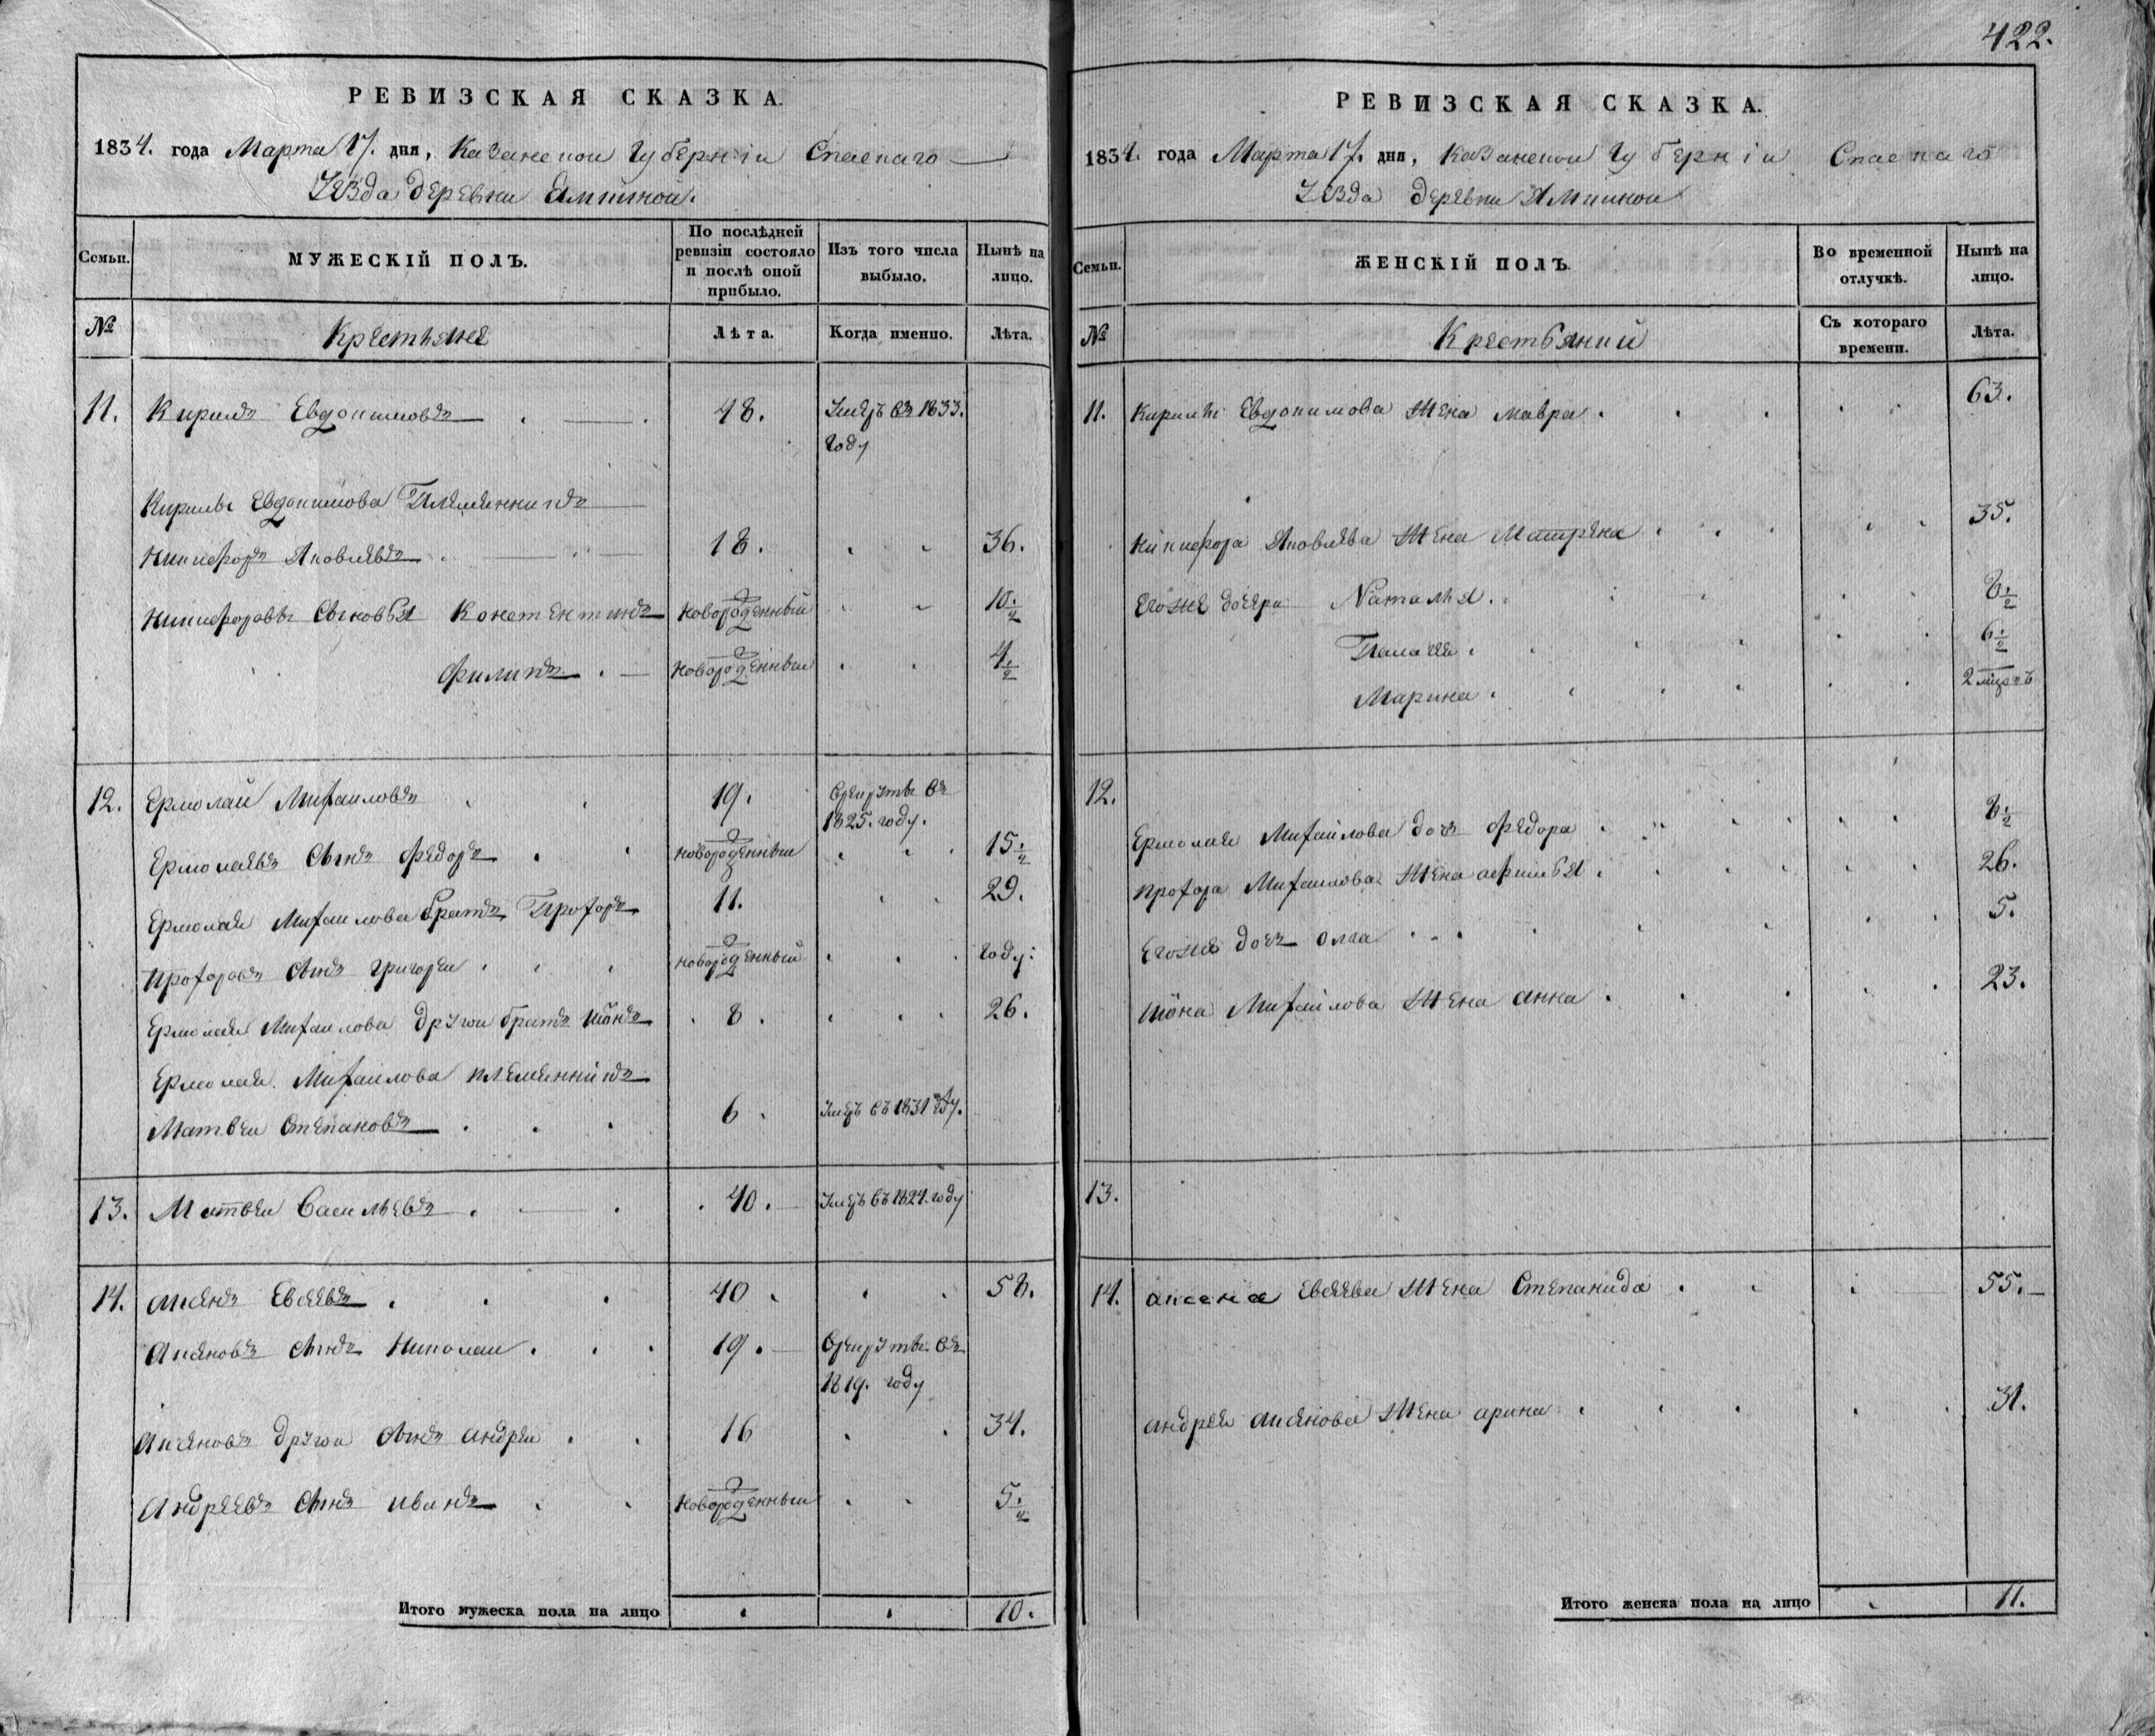 422.
РЕВИЗСКАЯ СКАЗКА.
1834. года Марта 17. дня, Казанской Губернiи Спаскаго
Уѣзда деревни Ямкиной.
Семьи.
МУЖЕСКІЙ ПОЛЪ.
По послѣдней ревизіи состояло и послѣ оной прибыло.
Изъ того числа выбыло.
Нынѣ на лицо.
№
Крестьяне
Лѣта.
Когда именно.
Лѣта.
11. Кирилъ Евдокимовъ 48. Умеръ въ 1833.
году
Кирилы Евдокимова Племянникъ
Никифоръ Яковлевъ 18. 36.
Никифоровы Сыновья Констентинъ новорожденный 10.½
Филипъ новорожденный 4.½
12. Ермолай Михаиловъ 19. Врекруты въ
1825. году.
Ермолаевъ Сынъ Федоръ новорожденный 15.½
Ермолая Михаилова братъ Прохоръ 11. 29.
Прохоровъ Сынъ григореи новорожденный году.
Ермолая Михаилова другои братъ 8. 26.
Ермолая Михаилова племянникъ
Матвеи Степановъ 6. Умеръ въ 1831 году.
13. Матвеи Васильевъ 40. Умеръ въ 1824. году
14. Евсеевъ 40. 58.
сынъ Николаи 19. Врекруты въ
1819. году
другои сынъ андреи 16 34.
Андреевъ сынъ иванъ новорожденныи 5.½
Итого мужеска пола на лицо 10.
РЕВИЗСКАЯ СКАЗКА.
1834. года Марта 17. дня, Казанской Губернiи Спаскаго
Уѣзда деревни Ямкиной
Семьи.
ЖЕНСКІЙ ПОЛЪ.
Во временной отлучкѣ.
Нынѣ на лицо.
№
Крестьянки
Съ котораго времени.
Лѣта.
11. Кирилы Евдокимова жена мавра 63.
Никифора Яковлева жена Матрена 35.
Егоже дочери Наталья 8.½
Палагея 6.½
Марина 2
12.
Ермолая Михаилова дочь Федора 8.½
прохора Михаилова жена афимья 26.
Егоже дочь олга 5.
Михаилова жена анна 23.
13.
14. аксена Евсеева жена Степанида 55.
андрея аксенова жена арина 31.
Итого женска пола на лицо 11.